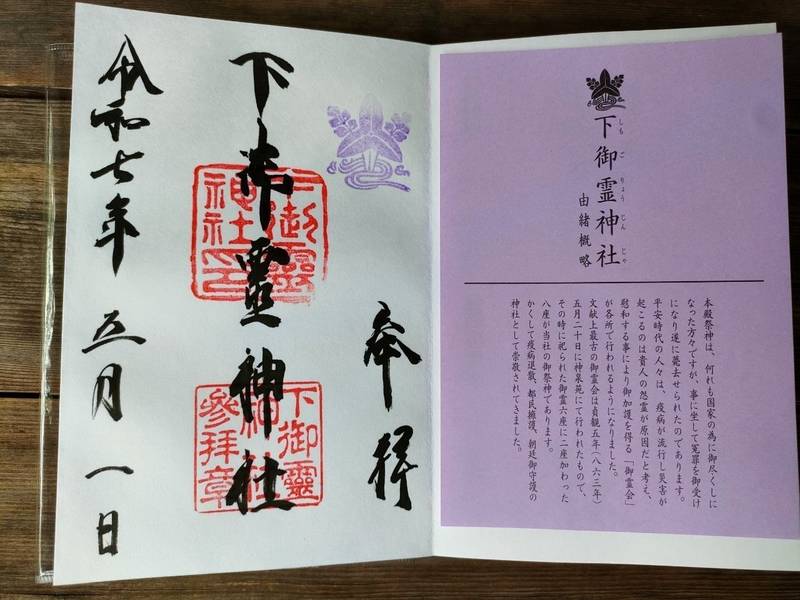 奉拝
下御靈神社
下御靈神社印
下御靈神社參拝章
令和七年 五月一日
下御霊神社
しもごりょうじんじゃ
由緒概略
本殿祭神は、何れも国家の為に御尽くしに
なった方々ですが、事に坐して冤罪を御受け
になり遂に薨去せられたのであります。
平安時代の人々は、疫病が流行し災害が
起こるのは貴人の怨霊が原因だと考え、
慰和する事により御加護を得る「御霊会」
が各所で行われるようになりました。
文献上最古の御霊会は貞観五年（八六三年）
五月二十日に神泉苑にて行われたもので、
その時に祀られた御霊六座に二座加わった
八座が当社の御祭神であります。
かくして疫病退散、都民擁護、朝廷御守護の
神社として崇敬されてきました。